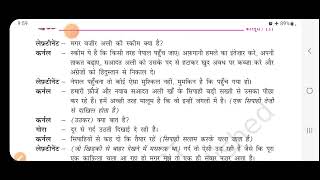 9:59
लेफ़्टीनेंट – मगर वज़ीर अली की स्कीम क्या है?
कर्नल – स्कीम ये है कि किसी तरह नेपाल पहुँच जाए। अफ़गानी हमले का इंतज़ार करे, अपनी
ताकत बढ़ाए, सआदत अली को उसके पद से हटाकर खुद अवध पर कब्ज़ा करे और
अंग्रेज़ों को हिंदुस्तान से निकाल दे।
लेफ़्टीनेंट – नेपाल पहुँचना तो कोई ऐसा मुश्किल नहीं, मुमकिन है कि पहुँच गया हो।
कर्नल – हमारी फ़ौजें और नवाब सआदत अली खाँ के सिपाही बड़ी सख्ती से उसका पीछा
कर रहे हैं। हमें अच्छी तरह मालूम है कि वो इन्हीं जंगलों में है। (एक सिपाही तेज़ी
से दाखिल होता है)
कर्नल – (उठकर) क्या बात है?
गोरा – दूर से गर्द उठती दिखाई दे रही है।
कर्नल – सिपाहियों से कह दो कि तैयार रहें (सिपाही सलाम करके चला जाता है)
लेफ़्टीनेंट – (जो खिड़की से बाहर देखने में मसरूफ़ था) गर्द तो ऐसी उड़ रही है जैसे कि पूरा